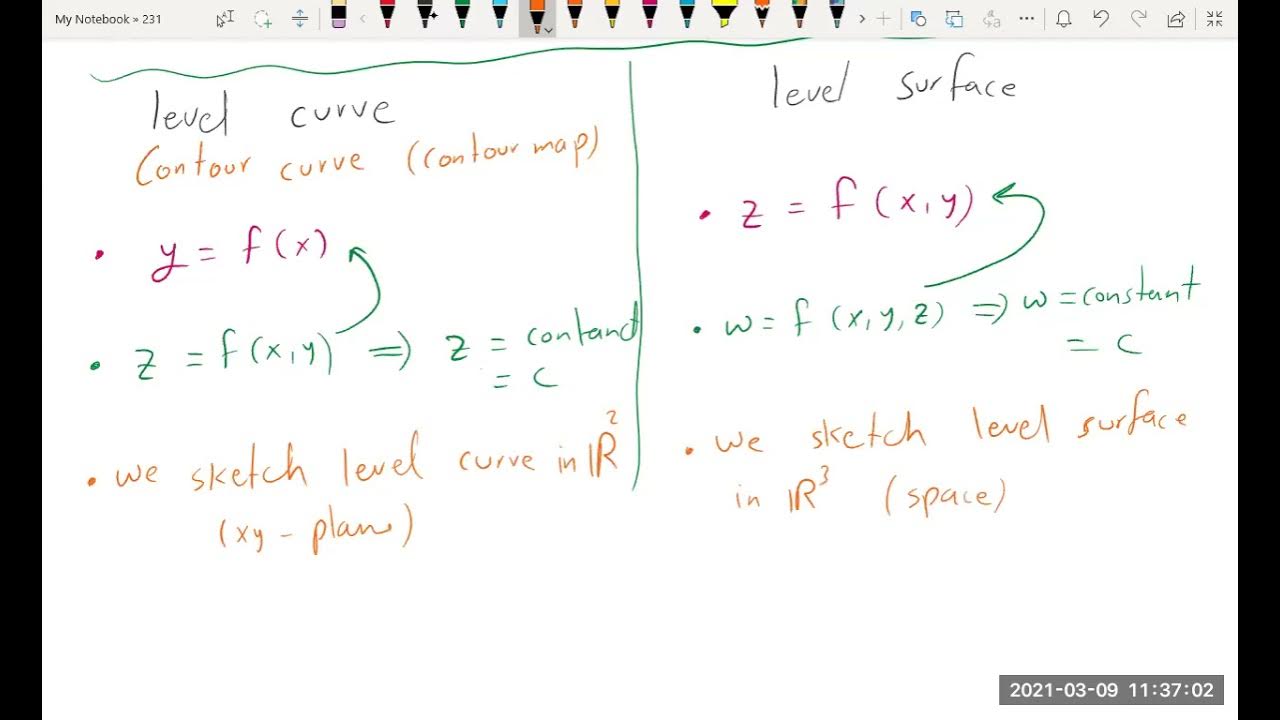 My Notebook » 231
level curve
Contour curve (contour map)
• y = f(x)
• z = f(x,y) ⇒ z = contanct
= c
• we sketch level curve in ℝ²
(xy - plane)
level surface
• z = f(x,y)
• w = f(x,y,z) ⇒ w = constant
= c
• we sketch level surface
in ℝ³ (space)
2021-03-09 11:37:02